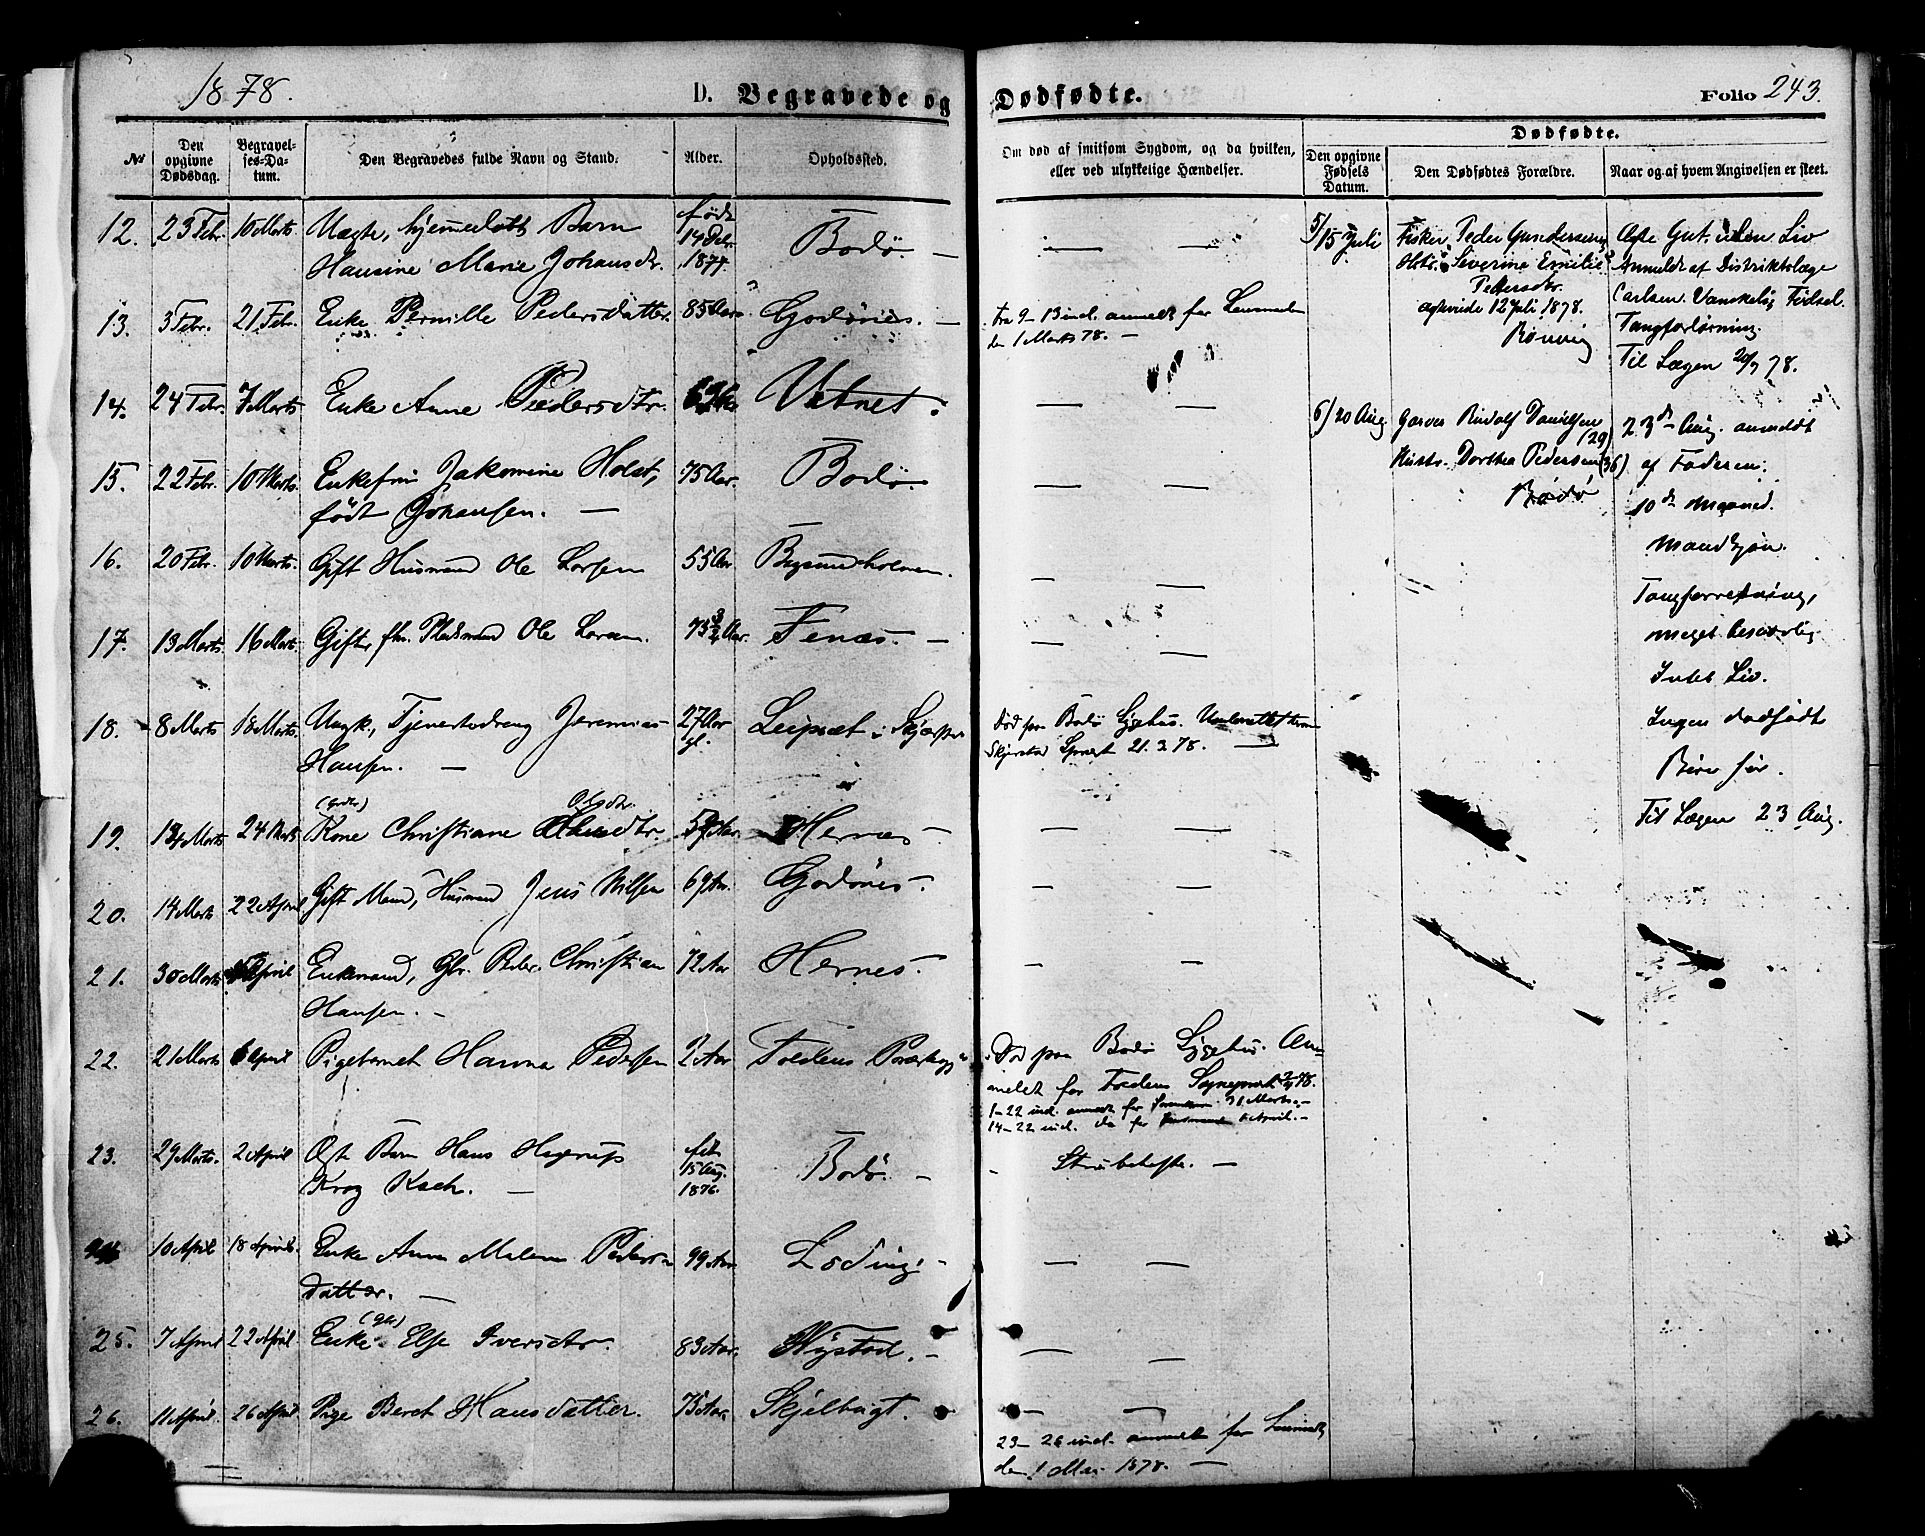 1878.
D. Begravede og Dødfødte.
Folio 243.
№
Den opgivne Dødsdag.
Begravelses-Datum.
Den Begravedes fulde Navn og Stand.
Alder.
Opholdssted.
Om død af smitsom Sygdom, og da hvilken, eller ved ulykkelige Hændelser.
Dødfødte.
Den opgivne Fødsels Datum.
Den Dødfødtes Forældre.
Naar og af hvem Angivelsen er skeet.
12. 23 Febr. 10 Marts. Uægte, hjemmedøbt Barn født Bodø. —
Hansine Marie Johansdr. 1877.
13. 3 Febr. 21 Febr. Enke Pernille Pedersdatter. 85 Aar. Godönes. —
fra 9–13 incl. anmeldt for Lensmanden
den 1 Marts 78. —
14. 24 Febr. 7 Marts Enke Anne Pedersdtr. Vatnet.
15. 22 Febr. 10 Marts. Enkefru Jakomine Holst, 75 Aar. Bodø.
født Johansen. —
16. 20 Febr. 10 Marts. Gift Husmand Ole Larsen 55 Aar
17. 13 Marts. 16 Marts. Gift, fhv. Pladsmand Ole 73 3/4 Aar. Fenæs. —
18. 8 Marts 18 Marts. Ungk., Tjenestedreng Jeremias 27 Aar gl.
Hansen. —
Død paa Bodø Sygehus.
Skjerstad 21.3.78. —
19. Marts 24 Marts Kone Christiane Olsdtr. Hernæs —
20. 14 Marts 22 April Gift Mand, Husmand Jens Nilsen 69 Aar. Godönes.
21. 30 Marts April Enkemand, Christian 72 Aar Hernes.
Hansen. —
22. 21 Marts 6 April Pigebarnet Hanna Pedersen 2 Aar Foldens
Død paa Bodø Sygehus. An-
meldt for Foldens
1–22 incl. anmeldt for 31 Marts. —
14–22 incl. do for April. —
23. 29 Marts. 2 April Ægte Barn Hans Hagerup født 15 Aug. 1876. Bodø. —
Krog Koch. —
Strubehoste. —
10 April 18 April. Enke Anne Malena Peders- 99 Aar. Löding. —
datter. —
25. 7 April 22 April. Enke Else Iversdtr. 83 Aar. —
26. 11 April. 26 April Pige Beret Hansdatter. 75 Aar. Skjelbugt.
23–26 incl. anmeldt for
den 1 Mai 1878. —
5/ 15 Juli Fisker Peder Gundersen
Hstr. Severine Emilie
Pedersdtr.
12 Juli 1878.
Rønvig
Ægte Gut uden Liv
Anmeldt af Distriktslæge
Carlsen. Vanskelig Fødsel.
Tangforløsning.
Til Lægen 20/7 78.
6/ 20 Aug. Garver Rudolf Danielsen (29)
Hustr. Dorthea Pedersen (36)
Bodø
23de Aug. anmeldt
af Faderen.
10de Maaned.
Mandkjøn.
Tangforretning,
meget besværlig
Intet Liv.
Ingen dødfødt
Børn før.
Til Lægen 23 Aug.